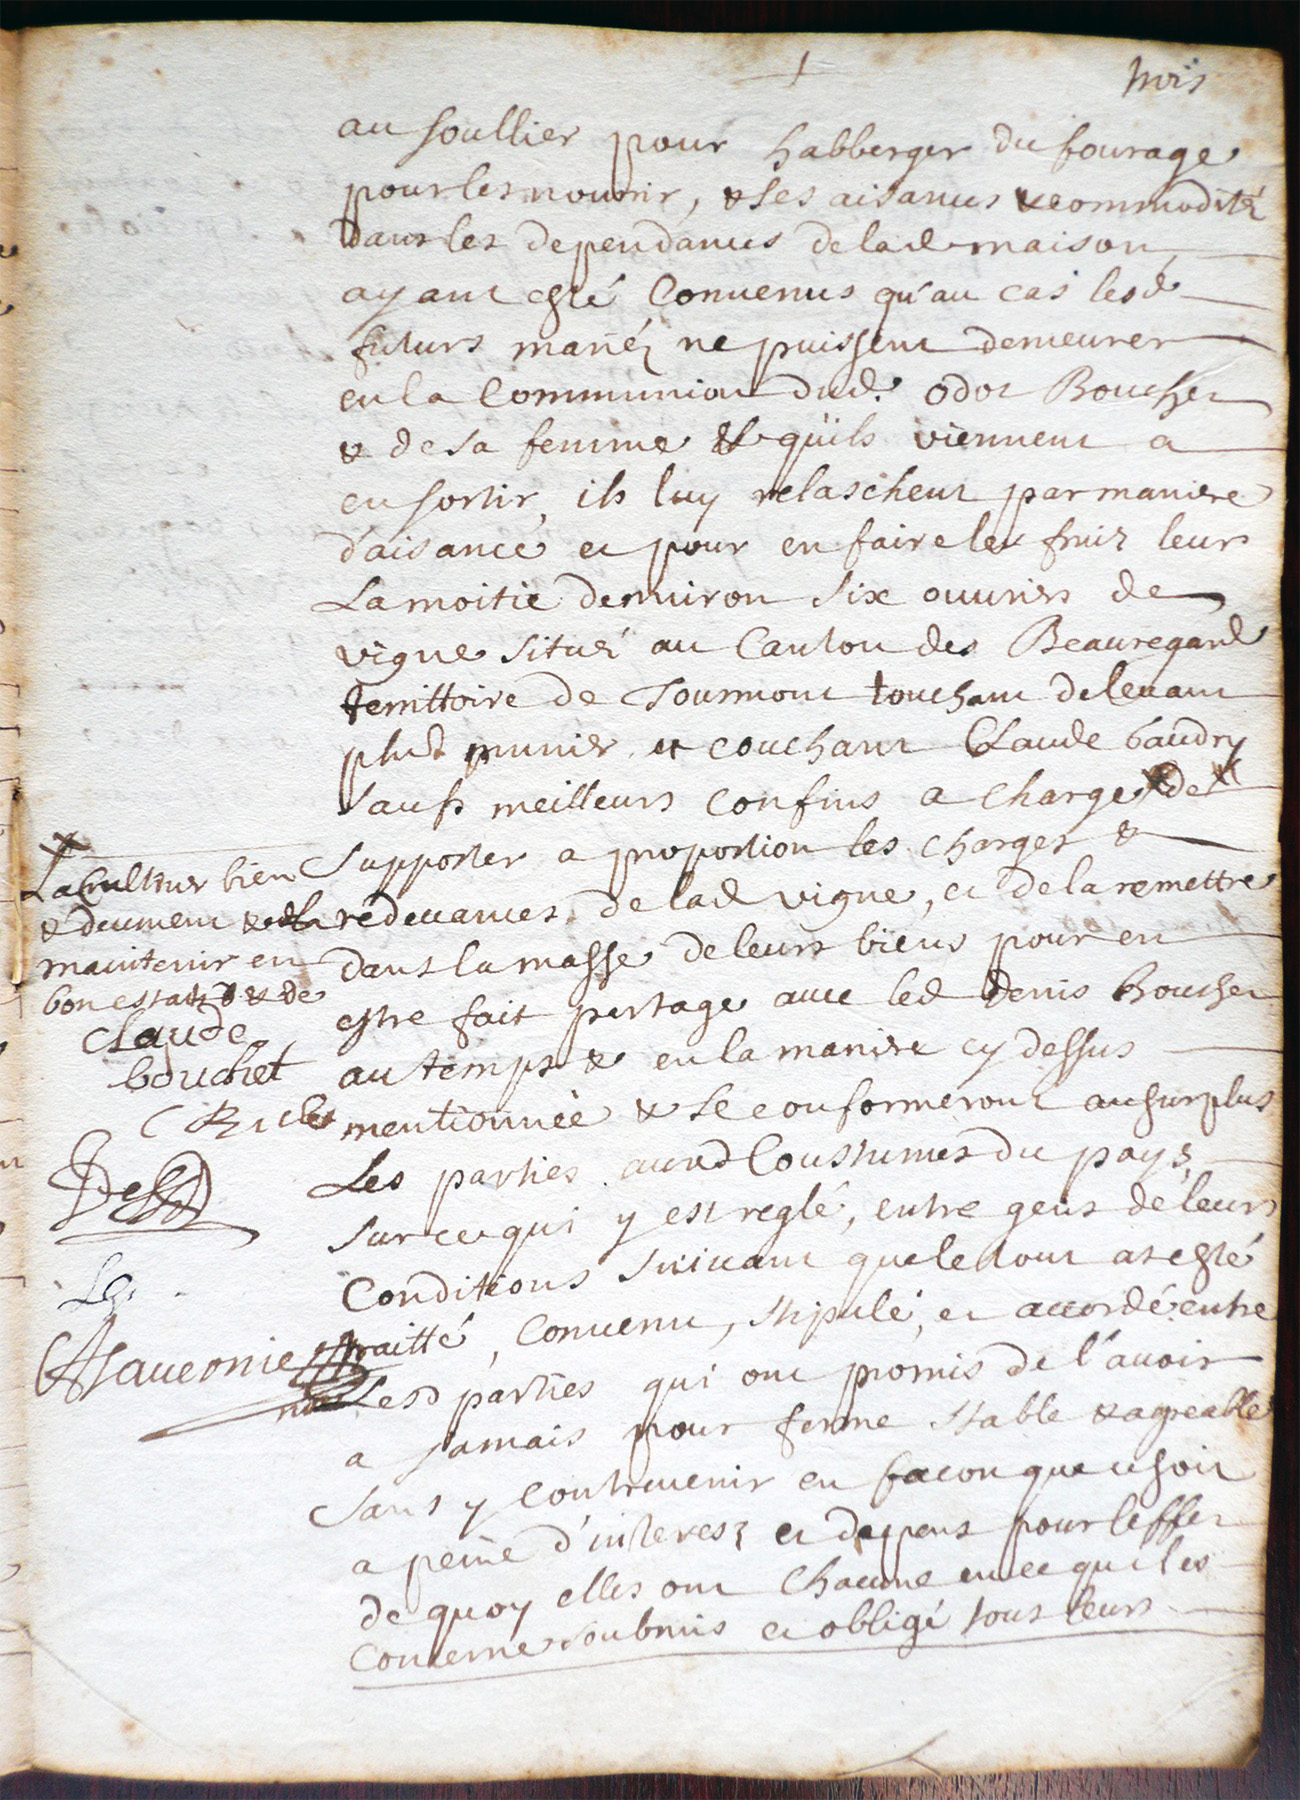 trois
au soullier pour habberger du fourage
pour les nourrir, & les aisances & commoditéz
dans les dependances de lad maison,
ayant esté Convenus qu'au cas lesd
futurs mariéz ne puissent demeurer
en la Communion dud. odot Boucher
& de sa femme & quils viennent a
en sortir, ils luy relaschent par maniere
d'aisance et pour en faire les fruiz leurs
La moitié denviron six ouvriers de
vigne situéz au Canton des Beauregard
territtoire de Tourmont touchant delevant
munier et couchant Claude baudry
sauf meilleurs confins a charge de
supporter a proportion les charges &
redevances de lad vigne, et de la remettre
dans la masse de leurs biens pour en
estre fait partage avec led denis Boucher
au temps & en la maniere cy dessus
mentionnée & se conformeront au surplus
Les parties aux Coustumes du pays,
sur ce qui y est reglé, entre gens de leurs
Conditions suivant que le tout at esté
traitté, Convenu, stipulé, et accordé entre
Lesd parties qui ont promis de l'avoir
a Jamais pour ferme stable & agreable
sans y Contrevenir en facon que ce soit
a peine d'interest et depens pour leffet
de quoy elles ont Chacune en ce qui les
Concerne soubmis et obligé tous leurs
La Cultiver bien
& deument &
maintenir en
bon estat & de
Claude
bouchet